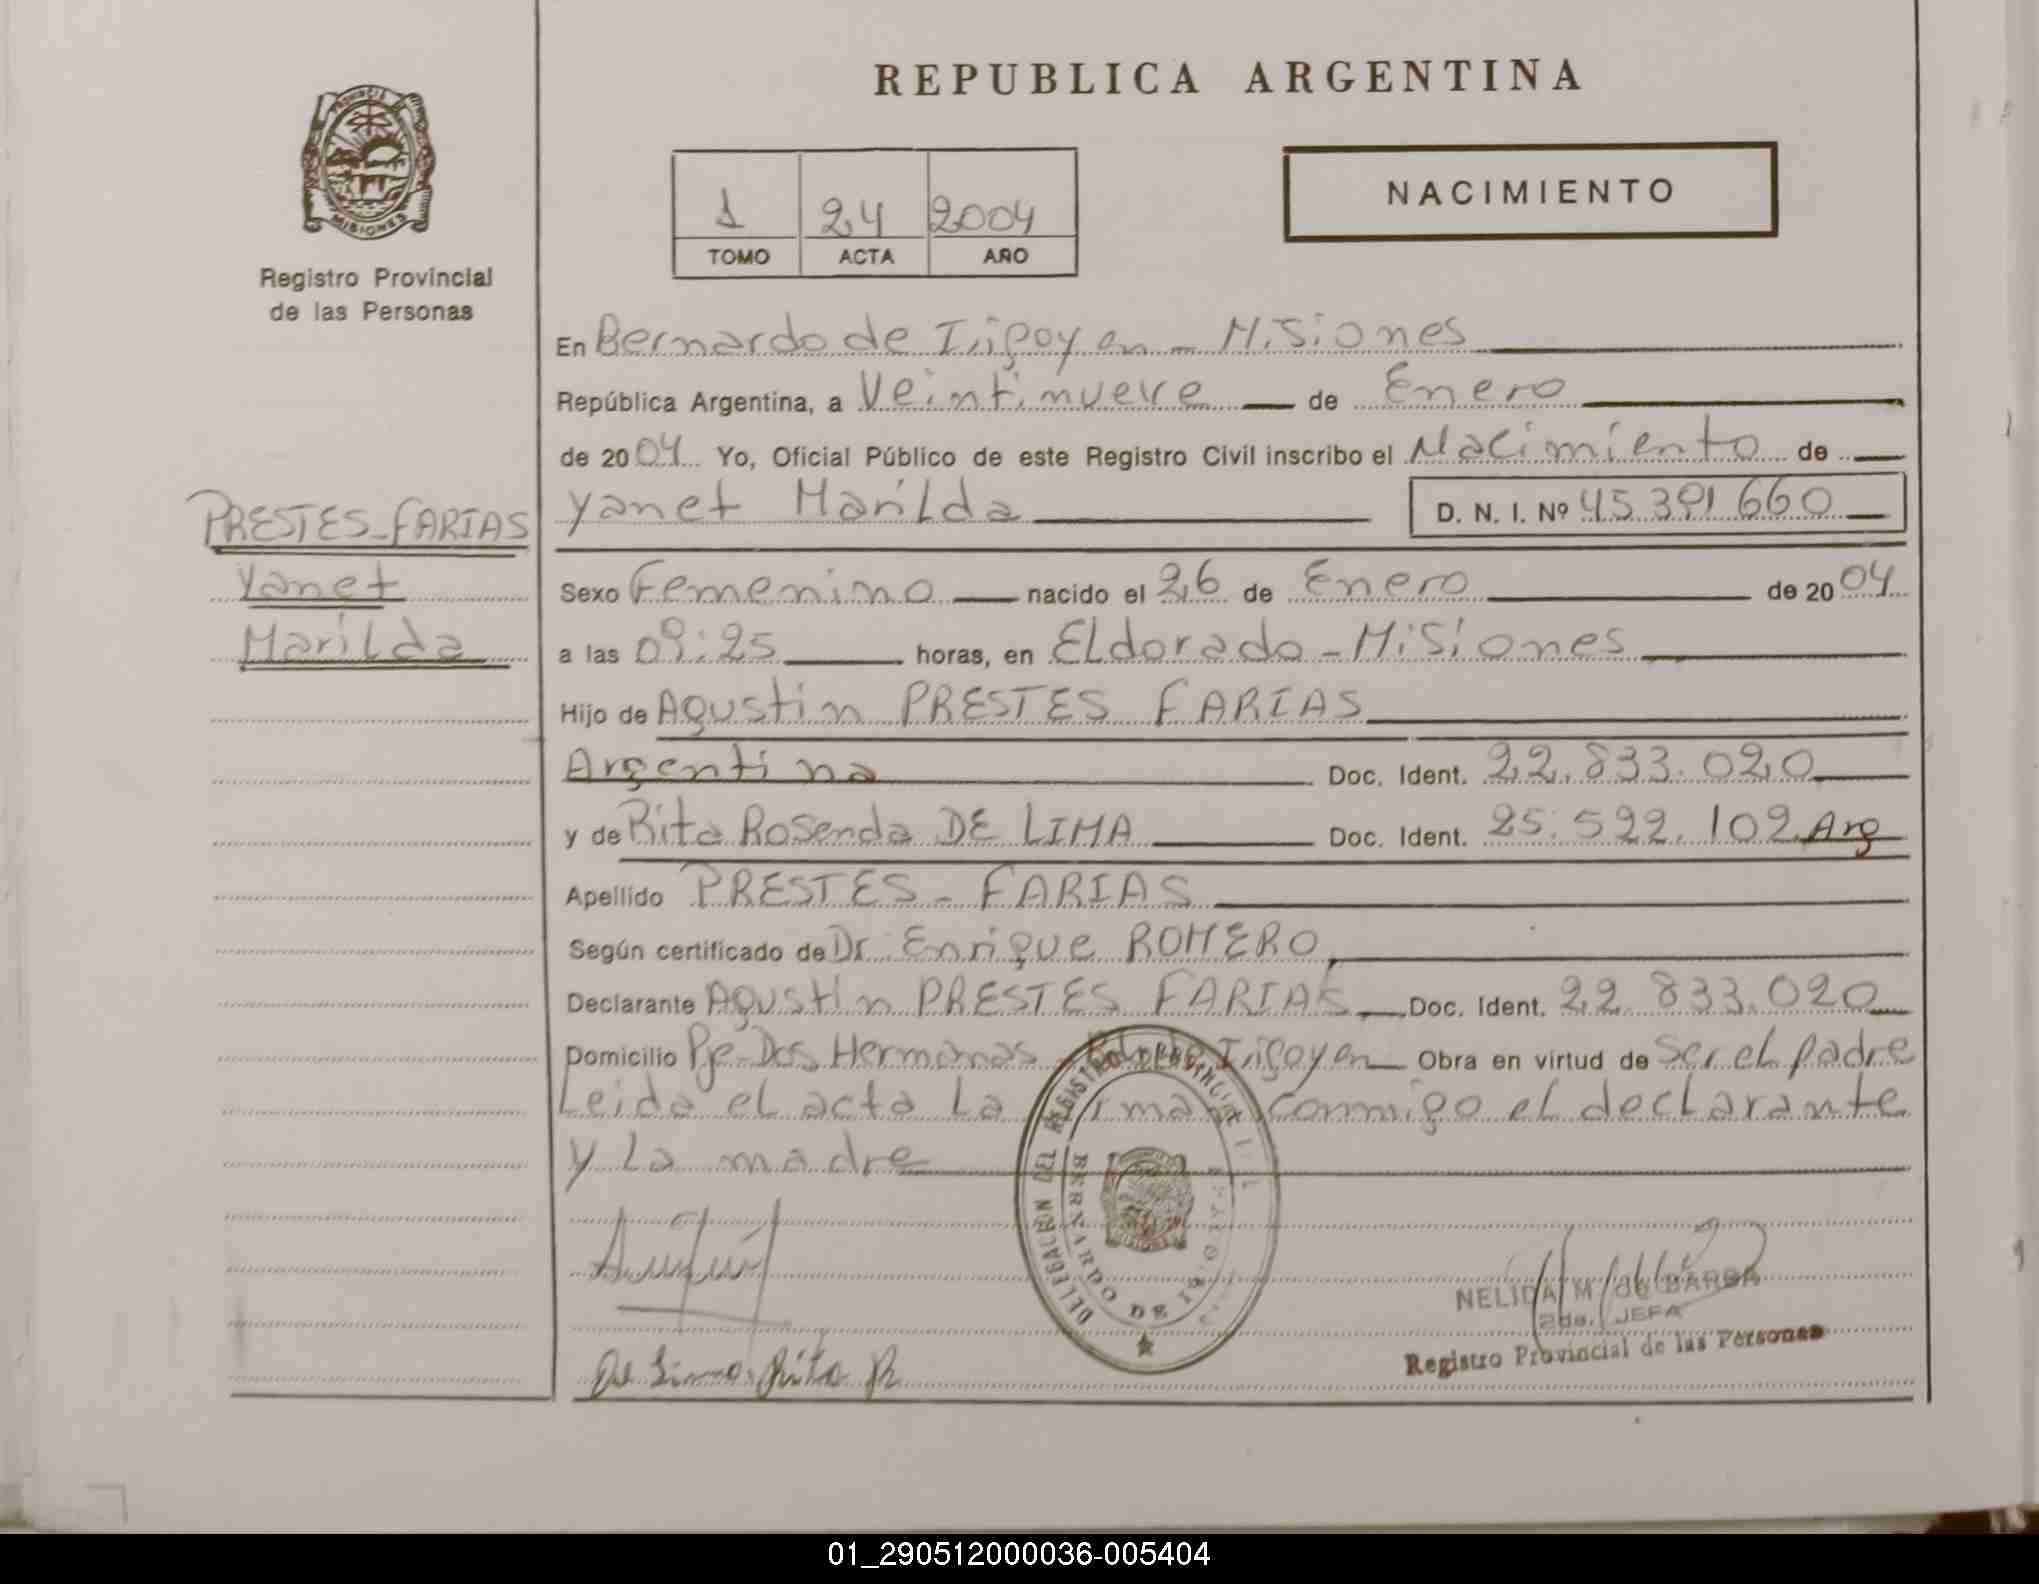 REPUBLICA ARGENTINA
PROVINCIA
MISIONES
Registro Provincial
de las Personas
1 24 2004
TOMO ACTA AÑO
NACIMIENTO
En Bernardo de Irigoyen - Misiones
República Argentina, a Veintinueve de Enero
de 2004 Yo, Oficial Público de este Registro Civil inscribo el Nacimiento de
Yanet Marilda D. N. I. Nº 45.391.660
PRESTES-FARIAS
Yanet
Marilda
Sexo Femenino nacido el 26 de Enero de 2004
a las 09:25 horas, en ELdorado - Misiones
Hijo de Agustin PRESTES FARIAS
Argentina Doc. Ident. 22.833.020
y de Rita Rosenda DE LIMA Doc. Ident. 25.522.102 Arg
Apellido PRESTES - FARIAS
Según certificado de Dr. Enrique ROMERO,
Declarante Agustin PRESTES FARIAS Doc. Ident. 22.833.020
Domicilio Pje-Dos Hermanas - Irigoyen Obra en virtud de ser el padre
Leida el acta La conmigo el declarante
y La madre
DELEGACION DEL REGISTRO PROVINCIAL
BERNARDO DE
De Lima Rita R
NELIDA M. de BARBA
2da. JEFA
Registro Provincial de las Personas
01_290512000036-005404